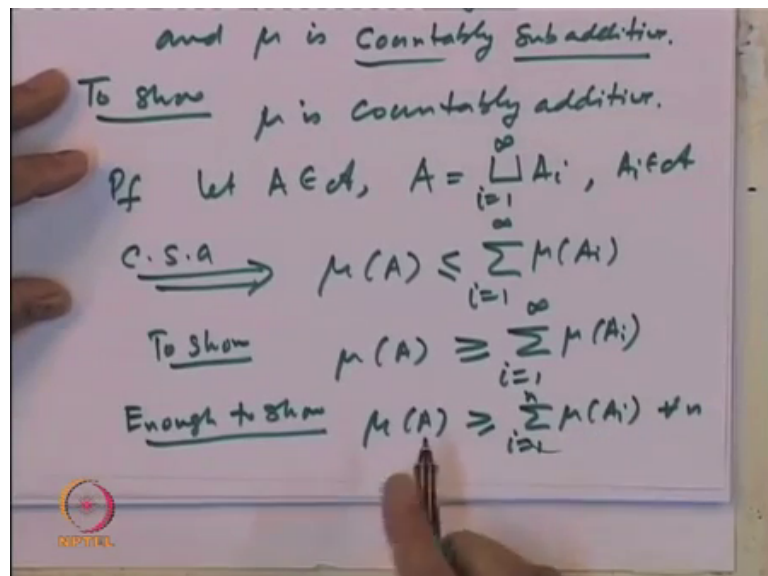 and μ is Countably Subadditive.
To show μ is countably additive.
Pf let A ∈ 𝒜, A = ⊔_{i=1}^{∞} A_i, A_i ∈ 𝒜
C.S.a ⟹ μ(A) ≤ ∑_{i=1}^{∞} μ(A_i)
To show μ(A) ≥ ∑_{i=1}^{∞} μ(A_i)
Enough to show μ(A) ≥ ∑_{i=1}^{n} μ(A_i) ∀ n
NPTEL